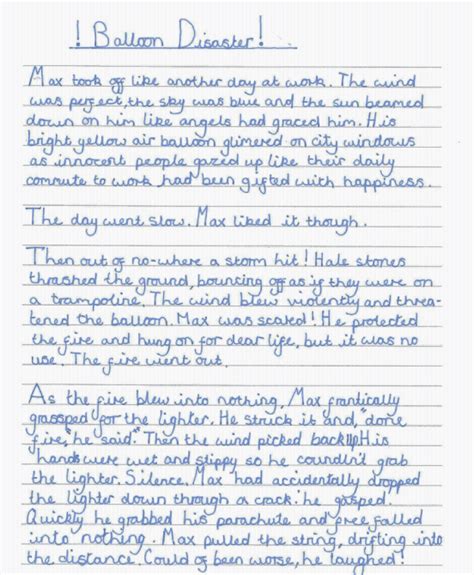 ! Balloon Disaster!
Max took off like another day at work. The wind
was perfect, the sky was blue and the sun beamed
down on him like angels had graced him. His
bright yellow air balloon glimered on city windows
as innocent people gazed up like their daily
commute to work had been gifted with happiness.
The day went slow. Max liked it though.
Then out of no-where a storm hit! Hale stones
thrashed the ground, bouncing off as if they were on
a trampoline. The wind blew violently and threa-
tened the balloon. Max was scared! He protected
the fire and hung on for dear life, but it was no
use. The fire went out.
As the fire blew into nothing, Max frantically
grassped for the lighter. He struck it and, "done
fire," he said. Then the wind picked back up. His
hands were wet and slippy so he coundln't grab
the lighter. Silence. Max had accidentally dropped
the lighter down through a crack: he gasped.
Quickly he grabbed his parachute and free falled
into nothing. Max pulled the string, drifting into
the distance. Could of been worse, he laughed!